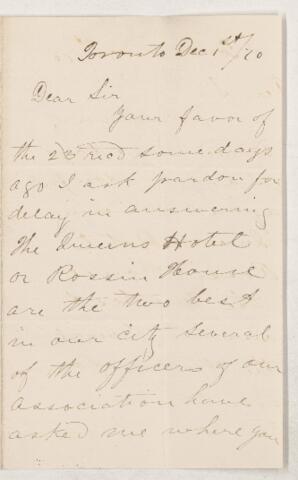 Toronto Dec 1st/70
Dear Sir
Your favor of
the 28 recd some days
ago I ask pardon for
delay in answering
The Queens Hotel
or Rossin House
are the two best
in our city Several
of the officers of our
association have
asked me where you